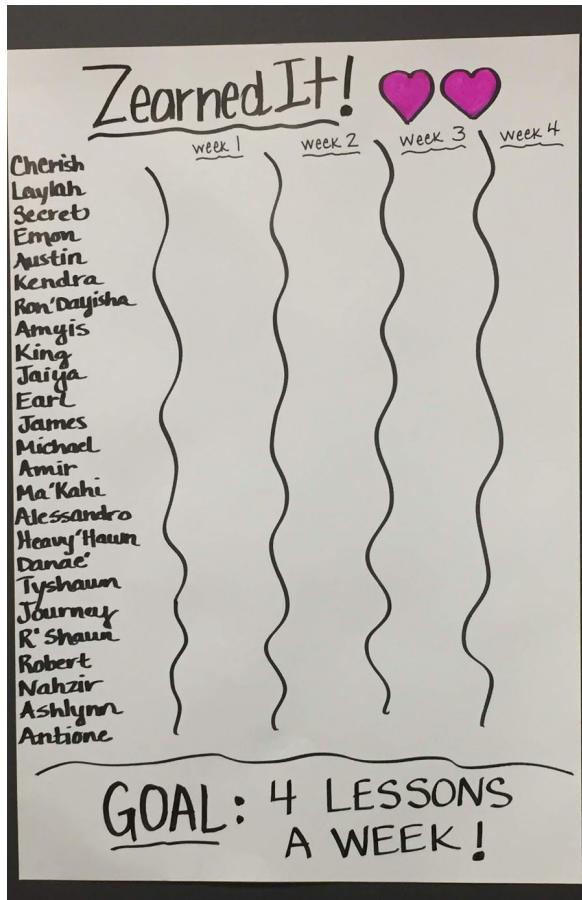 Zearned It!
week 1 week 2 week 3 week 4
Cherish
Laylah
Secret
Emon
Austin
Kendra
Ron'Dayisha
Amyis
King
Jaiya
Earl
James
Michael
Amir
Ma'Kahi
Alessandro
Heavy'Hawn
Danae'
Tyshaun
Journey
R'Shaun
Robert
Nahzir
Ashlynn
Antione
GOAL: 4 LESSONS
A WEEK!